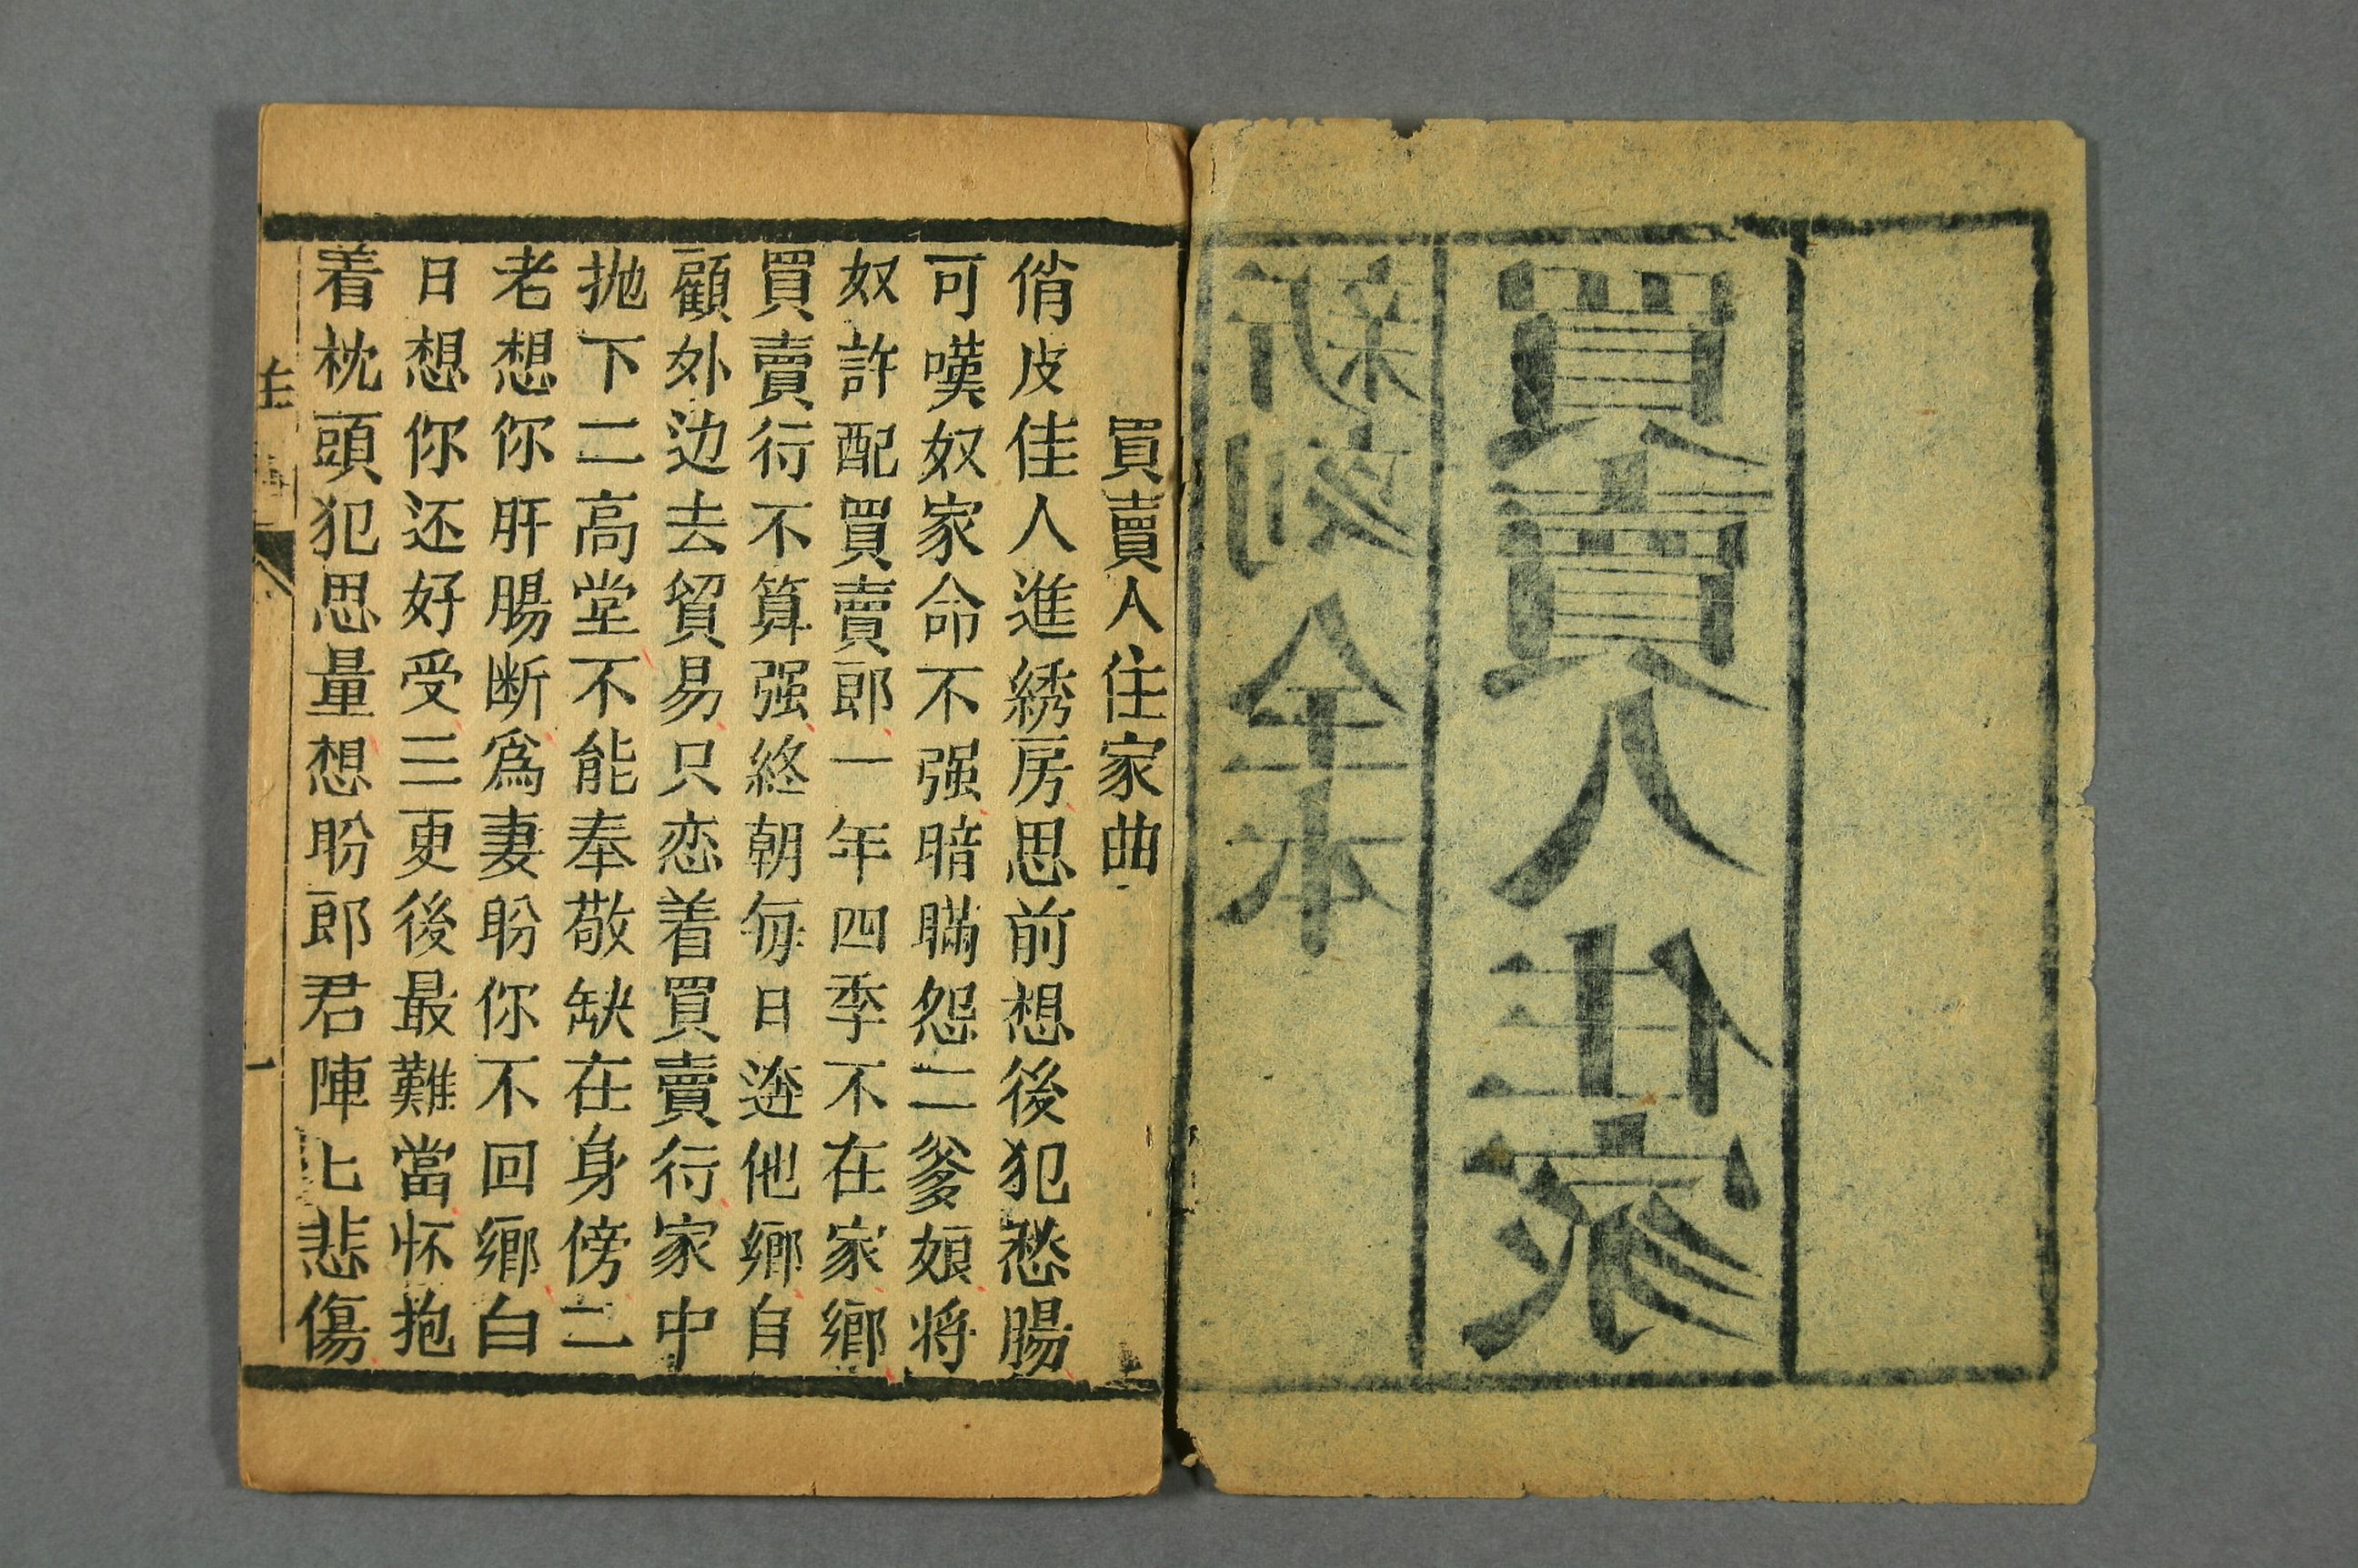 買賣人住家
新刻全本
買賣人住家曲
俏皮佳人進綉房思前想後犯愁腸
可嘆奴家命不强暗瞞怨二爹娘将
奴許配買賣郎一年四季不在家鄉
買賣行不算强終朝每日逩他鄉自
顧外边去貿易只恋着買賣行家中
抛下二高堂不能奉敬缺在身傍二
老想你肝腸断為妻盼你不回鄉白
日想你还好受三更後最難當怀抱
着枕頭犯思量想盼郎君陣匕悲傷
一